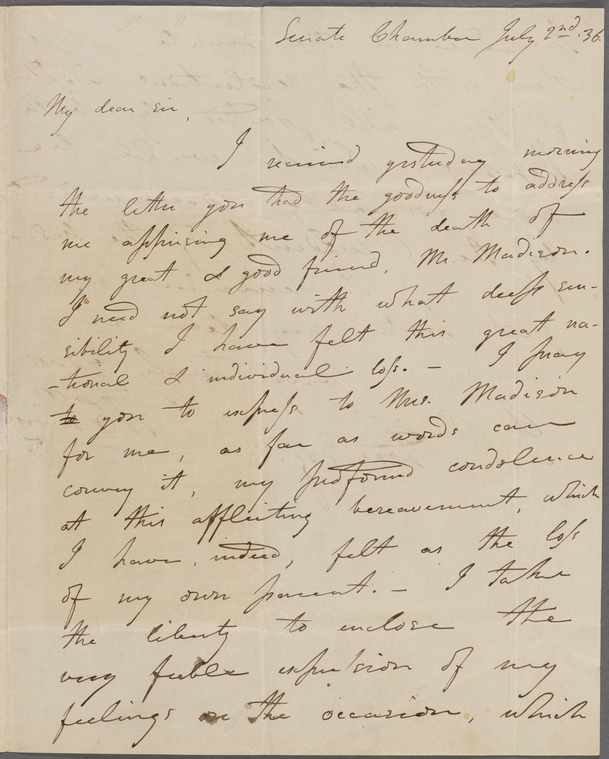 Senate Chamber July 2nd. 36.
My dear sir,
I received yesterday morning
the letter you had the goodness to address
me apprising me of the death of
my great & good friend, Mr. Madison.
I need not say with what deep sen-
sibility I have felt this great na-
-tional & individual loss. — I pray
to you to express to Mrs. Madison
for me, as far as words can
convey it, my profound condolence
at this afflicting bereavement, which
I have, indeed, felt as the loss
of my own parent. — I take
the liberty to enclose the
very feeble expression of my
feelings on the occasion, which